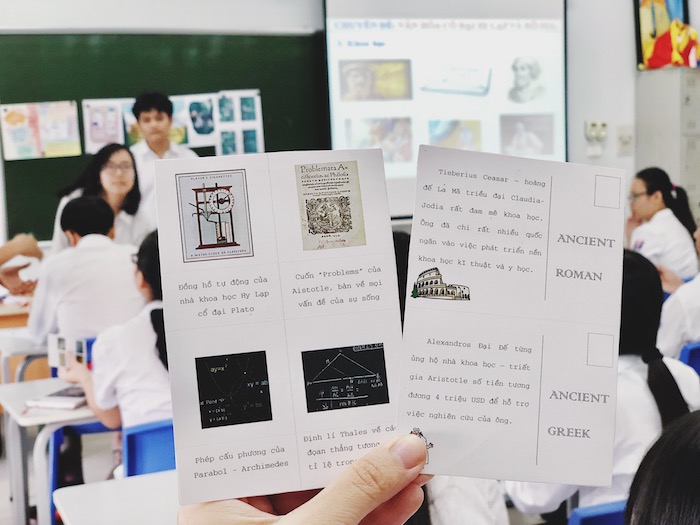 CHUYÊN ĐỀ: VĂN HÓA CỔ ĐẠI HY LẠP VÀ RÔMA
PLAYER'S CIGARETTES
A WATER CLOCK
Problemata A-
Đồng hồ tự động của
nhà khoa học Hy Lạp
cổ đại Plato
Cuốn "Problems" của
Aistotle, bàn về mọi
vấn đề của sự sống
Phép cầu phương của
Parabol - Archimedes
Định lí Thales về cá
đoạn thẳng tương
tỉ lệ tron
Tieberius Ceasar - hoàng
đế La Mã triều đại Claudia-
Jodia rất đam mê khoa học.
Ông đã chi rất nhiều quốc
ngân vào việc phát triển nền
khoa học kĩ thuật và y học.
ANCIENT
ROMAN
Alexandros Đại Đế từng
ủng hộ nhà khoa học - triết
gia Aristotle số tiền tương
đương 4 triệu USD để hỗ trợ
việc nghiên cứu của ông.
ANCIENT
GREEK